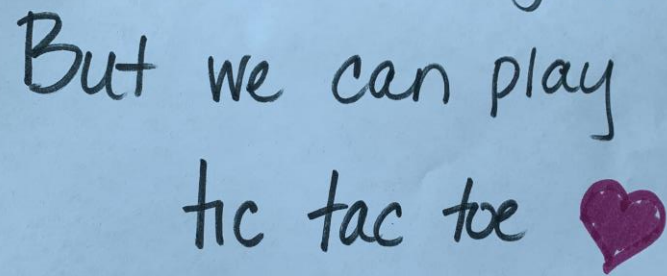 But we can play
tic tac toe